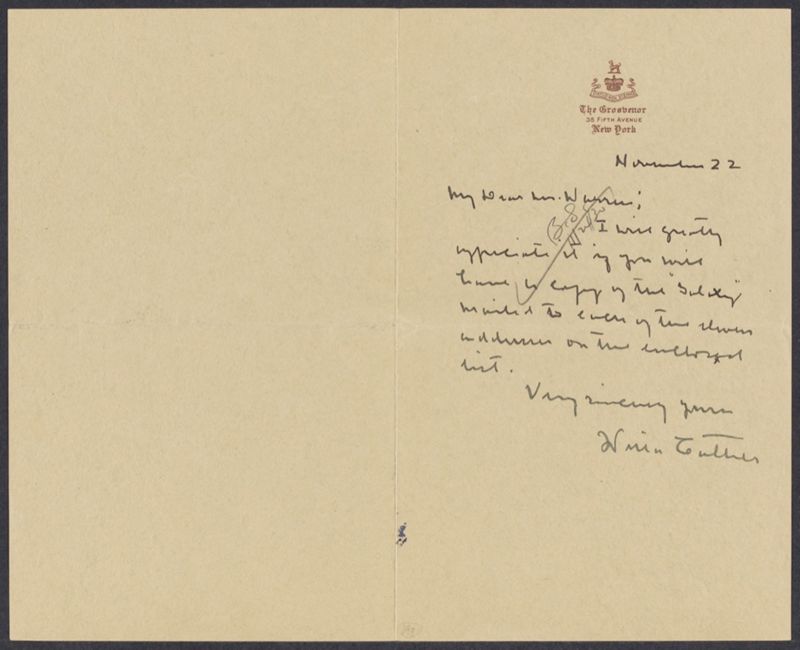 The Grosvenor
35 Fifth Avenue
New York
November 22
My Dear Mr. Warren;
I will greatly
appreciate it if you will
have a copy of the "Galaxy"
mailed to each of the eleven
addresses on the enclosed
list.
Very sincerely yours
Willa Cather